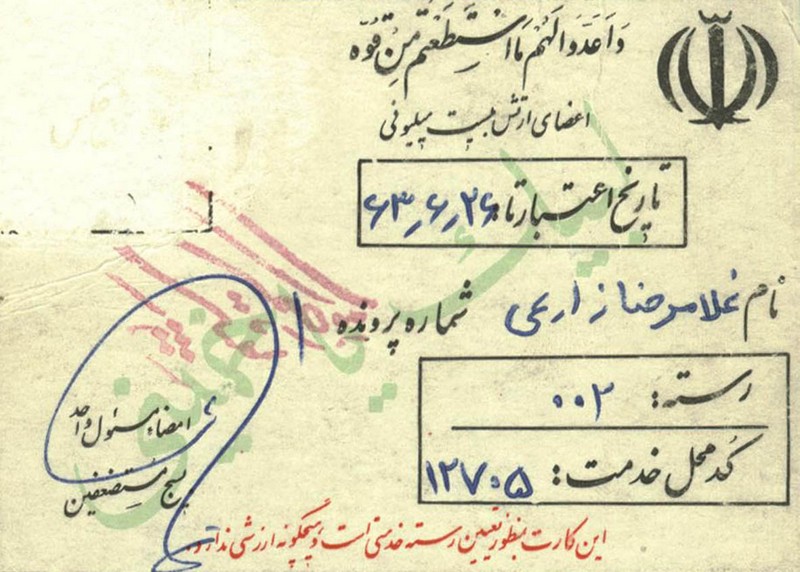 وَاَعِدّوا لَهُم مَا اسْتَطَعْتُم مِنْ قُوَّه
اعضای ارتش بیست میلیونی
تاریخ اعتبار تا: ۶۳٫۶٫۲۶
نام غلامرضا زارعی شماره پرونده ۱
رسته: ۰۰۲
کد محل خدمت: ۱۲۷۰۵
امضاء مسئول واحد
بسیج مستضعفین
این کارت بمنظور تعیین رسته خدمتی است و هیچگونه ارزشی ندارد.
لبیک یا خمینی